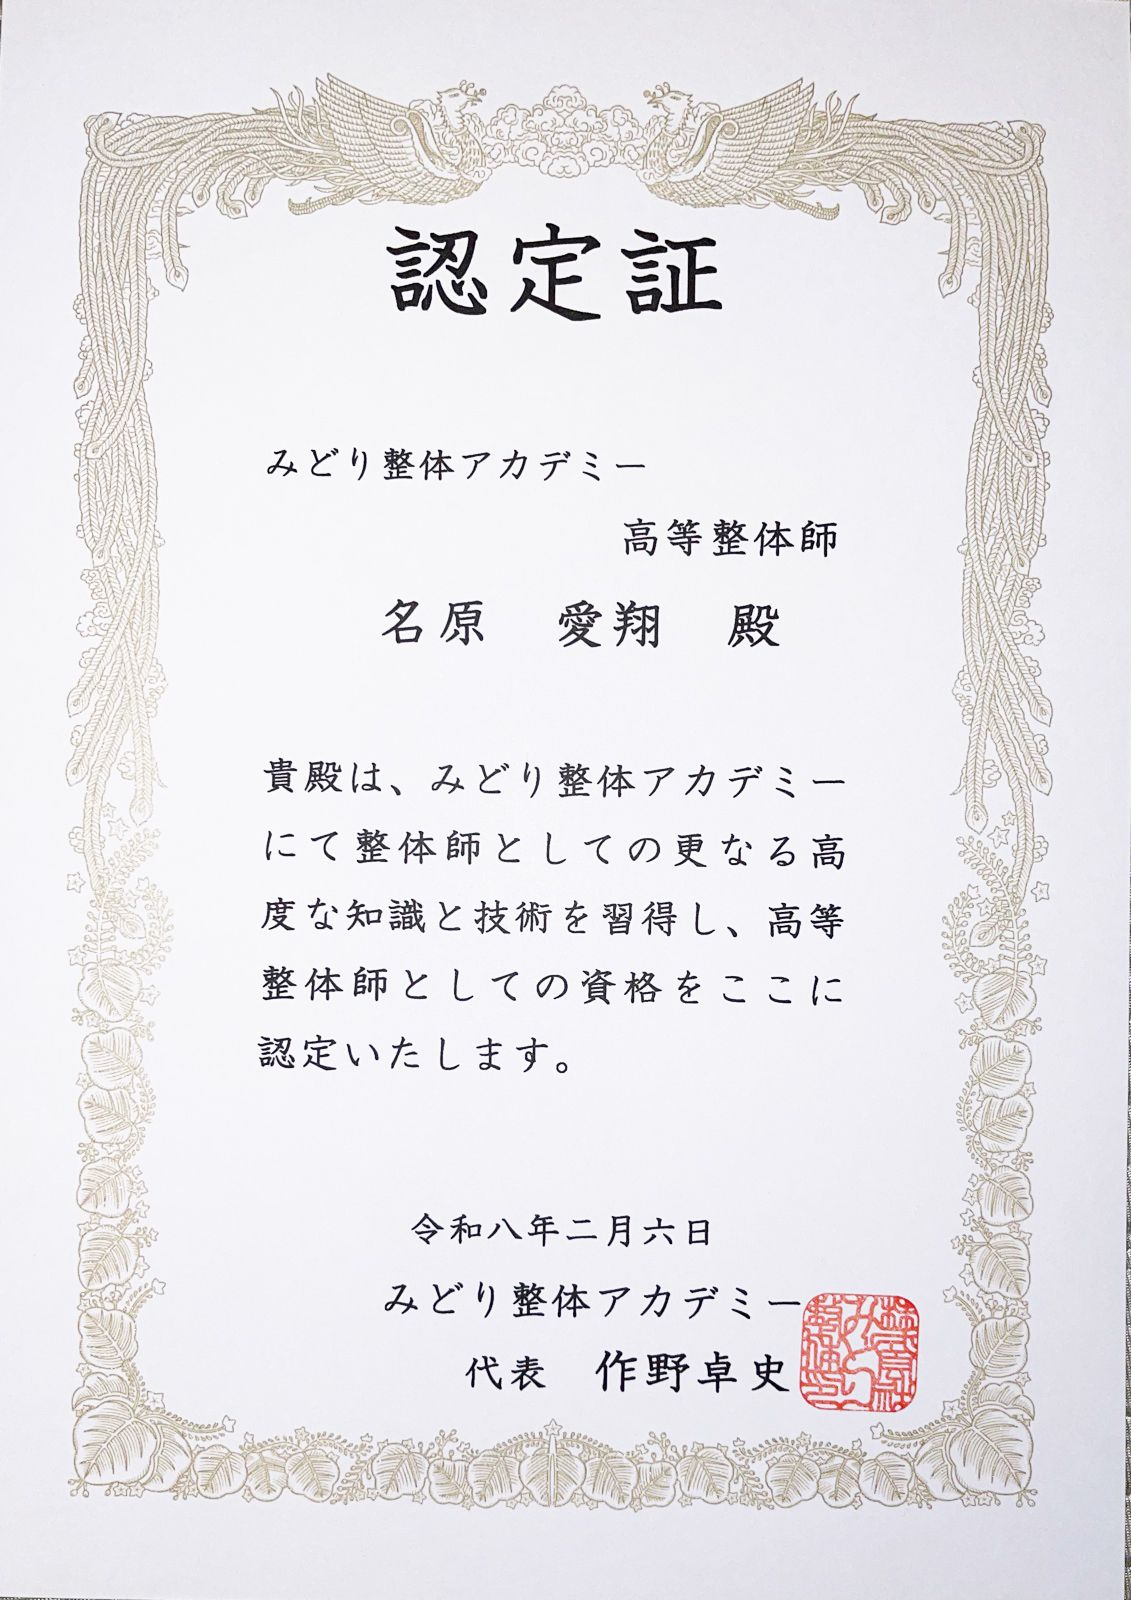 認定証
みどり整体アカデミー
高等整体師
名原　愛翔　殿
貴殿は、みどり整体アカデミー
にて整体師としての更なる高
度な知識と技術を習得し、高等
整体師としての資格をここに
認定いたします。
令和八年二月六日
みどり整体アカデミー
代表　作野卓史